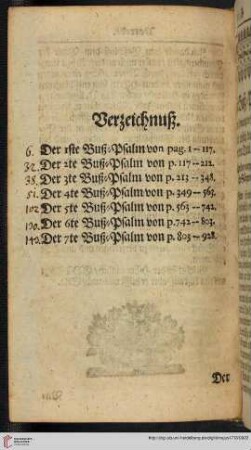 Verzeichnuß.
6. Der 1ste Buß-Psalm von pag. 1--117.
32. Der 2te Buß-Psalm von p. 117--212.
38. Der 3te Buß-Psalm von p. 213--348.
51. Der 4te Buß-Psalm von p. 349--563.
102. Der 5te Buß-Psalm von p. 563--742.
130. Der 6te Buß-Psalm von p. 742--803.
143. Der 7te Buß-Psalm von p. 803--928.
Der